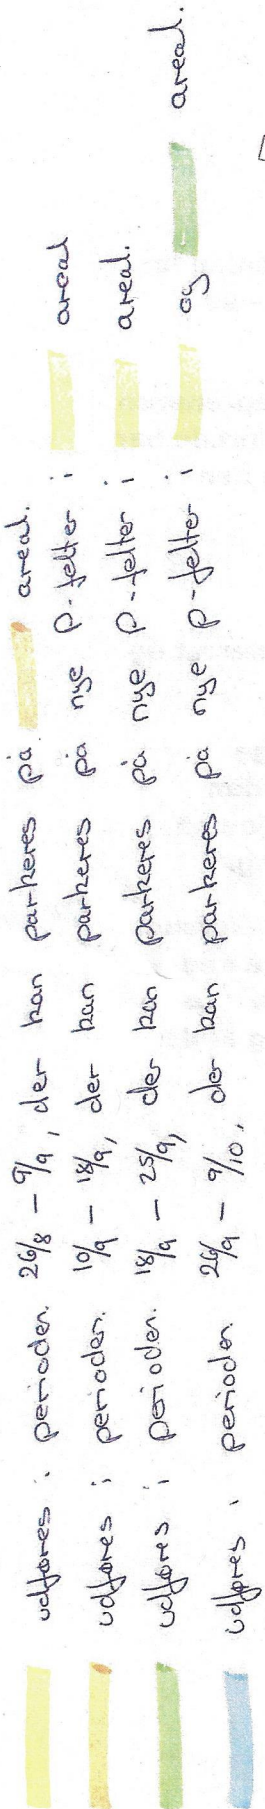 udføres i perioden 26/8 – 9/9, der kan parkeres på areal.
udføres i perioden 10/9 – 18/9, der kan parkeres på nye p-felter i areal
udføres i perioden 18/9 – 25/9, der kan parkeres på nye p-felter i areal.
udføres i perioden 26/9 – 9/10, der kan parkeres på nye p-felter i og areal.